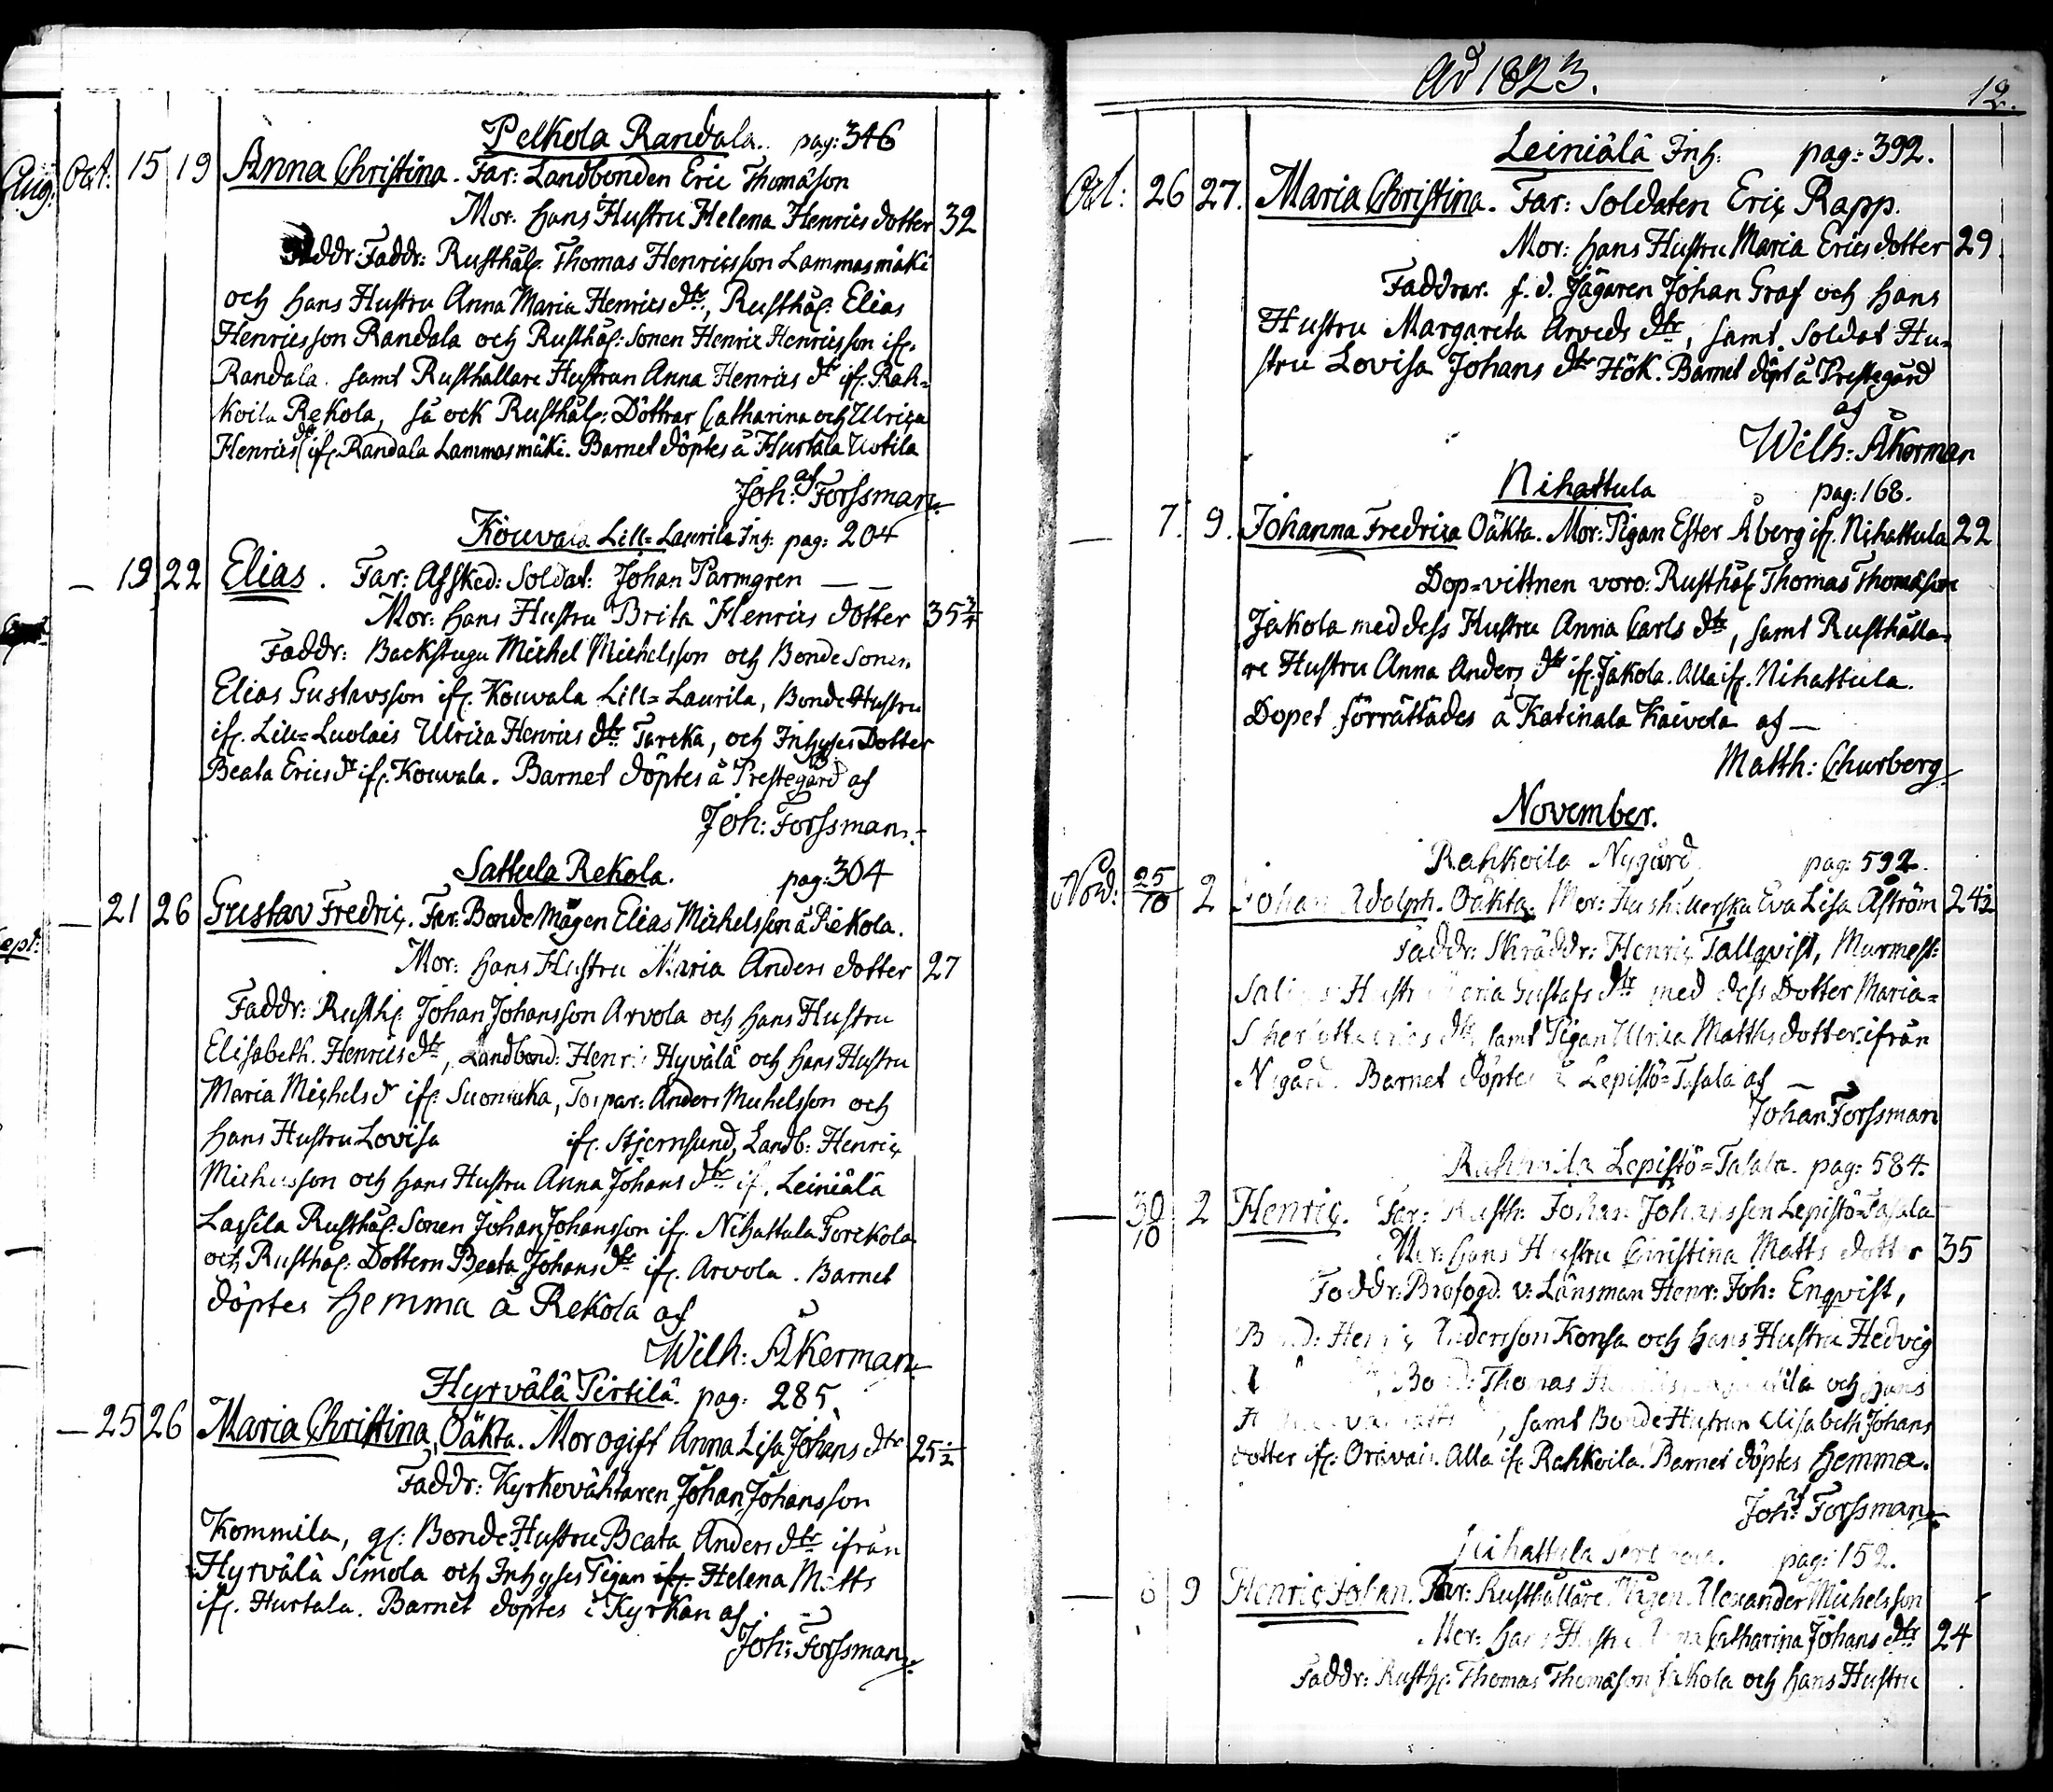 Pelkola Randala. pag: 346
Aug: Oct: 15 19 Anna Christina. Far: Landbonden Eric Thomason
Mor: hans Hustru Helena Henrics dotter 32
Faddr: Rusthål: Thomas Henricsson Lammasmäki
och hans Hustru Anna Maria Henrics dtr, Rusthål: Elias
Henricsson Randala och Rusthål: Sonen Henric Henricsson ifr.
Randala. samt Rusthållare Hustrun Anna Henrics dr ifr. Rah-
koila Rekola, så ock Rusthål: Döttrar Catharina och Ulrica
Henrics dr ifr. Randala Lammasmäki. Barnet döptes å Hurtala Uotila
af
Joh: Forssman
Kouvala Lill=Laurila Inh: pag: 204
— 19 22 Elias. Far: Afsked: Soldat: Johan Parmgren — —
Mor: hans Hustru Brita Henrics dotter 35 3/4
Faddr: Backstugu Michel Michelsson och Bonde Sonen
Elias Gustavsson ifr. Kouvala Lill=Laurila, Bonde Hustru
ifr. Lill=Luolais Ulrica Henrics dtr Tareka, och Inhyses Dotter
Beata Erics dr ifr. Kouvala. Barnet döptes å Prestegård af
Joh: Forssman.
Sattula Rekola. pag: 304
— 21 26 Gustav Fredric. Far: Bonde Mågen Elias Michelsson å Rekola.
Sept:
Mor: hans Hustru Maria Anders dotter 27
Faddr: Rusth: Johan Johansson Arvola och hans Hustru
Elisabeth. Henrics dtr, Landbond: Henric Hyvälä och hans Hustru
Maria Michels dr ifr. Suoniska, Torpar: Anders Michelsson och
hans Hustru Lovisa ifr. Stjernsund, Landb: Henric
Michelsson och hans Hustru Anna Johans dtr if. Leiniälä
Lassila Rusthål: Sonen Johan Johansson ifr. Nihattula Torckola
och Rusthål: Dottern Beata Johans dr ifr. Arvola. Barnet
döptes hemma å Rekola af
Wilh: Åkerman
Hyrvälä Pirtilä. pag: 285.
— 25 26 Maria Christina, Oäkta. Mor ogift Anna Lisa Johans dtr 25 1/2
Faddr: Kyrkovähtaren Johan Johansson
Kommila, gl: Bonde Hustru Beata Anders dtr ifrån
Hyrvälä Simola och Inhyses Pigan ifr. Helena Matts
ifr. Hurtala. Barnet döptes i Kyrkan af
Joh: Forssman
Ao 1823.
12.
Leiniälä Inh: pag: 392.
Oct: 26 27. Maria Christina. Far: Soldaten Eric Rapp.
Mor: hans Hustru Maria Erics dotter 29
Faddrar. f. d. Jägaren Johan Graf och hans
Hustru Margareta Arveds dtr, samt Soldat Hu-
stru Lovisa Johans dtr Hök. Barnet döpt å Prestegård
af
Wilh: Åkerman
Nihattula pag: 168.
— 7. 9. Johanna Fredrica Oäkta. Mor: Pigan Ester Åberg ifr. Nihattula 22
Dop=vittnen voro: Rusthål Thomas Thomasson
Jakola med dess Hustru Anna Carls dtr, samt Rusthålla-
re Hustru Anna Anders dtr ifr. Jakola. Alla ifr. Nihattula.
Dopet förrättades å Katinala Kaivola af —
Matth: Churberg
November.
Rahkoila Nygård pag: 592.
Nov: 25/10 2 Johan Adolph. Oäkta. Mor: Hushållerska Eva Lisa Åström 24 1/2
Faddr: Skräddr: Henric Tallqvist, Murmest:
Hustru Maria Gustafs dtr med dess Dotter Maria=
dtr samt Pigan Ulrica Matths dotter ifrån
Nygård. Barnet döptes å Lepistö=Tasala af —
Johan Forssman
Rahkoila Lepistö=Tasala. pag: 584.
— 30/10 2 Henric. Far: Rusth: Johan Johansson Lepistö=Tasala
Mor: hans Hustru Christina Matts dotter 35
Faddr: Brofogd. v: Länsman Henr: Joh: Enqvist,
Bond: Henric Andersson Konsa och hans Hustru Hedvig
Bond: Thomas och hans
, samt Bonde Hustrun Elisabeth Johans
dotter ifr. Alla ifr. Rahkoila. Barnet döptes hemma.
af
Joh: Forssman
Nihattula pag: 152.
— 6 9 Henric Johan. Far: Rusthållare Mågen Alexander Michelsson
Mor: hans Hustru Anna Catharina Johans dtr 24
Faddr: Rusth: Thomas Thomasson Jakola och hans Hustru